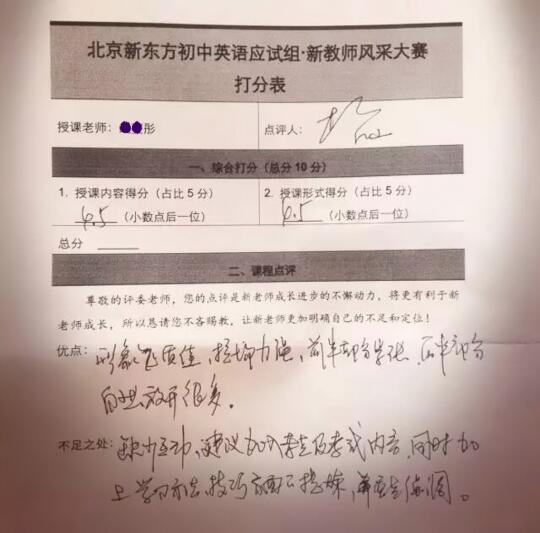 北京新东方初中英语应试组·新教师风采大赛
打分表
授课老师：彤
点评人：
一、综合打分（总分10分）
1. 授课内容得分（占比5分）
4.5（小数点后一位）
2. 授课形式得分（占比5分）
4.5（小数点后一位）
总分
二、课程点评
尊敬的评委老师，您的点评是新老师成长进步的不懈动力，将更有利于新
老师成长，所以恳请您不吝赐教，让新老师更加明确自己的不足和定位！
优点：形象气质佳，控场力强，前半部分紧张，后半部分
自然放开很多。
不足之处：缺少互动，建议加入考点及考试内容，同时加
上学习方法，技巧方面的提炼，